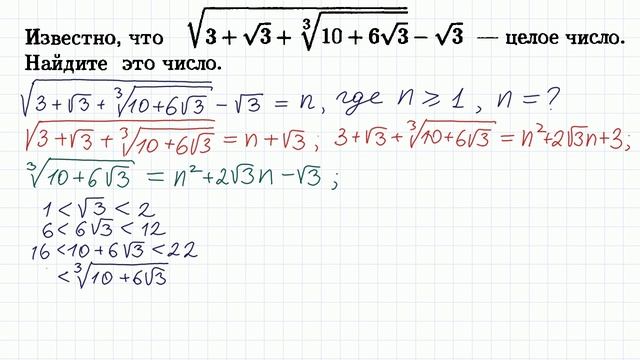 Известно, что √(3 + √3 + ∛(10 + 6√3)) − √3 — целое число.
Найдите это число.
√(3+√3 + ∛(10+6√3)) − √3 = n, где n ⩾ 1, n = ?
√(3+√3 + ∛(10+6√3)) = n + √3 ; 3+√3 + ∛(10+6√3) = n²+2√3n+3;
∛(10+6√3) = n²+2√3n −√3 ;
1 < √3 < 2
6 < 6√3 < 12
16 < 10+6√3 < 22
< ∛(10+6√3)